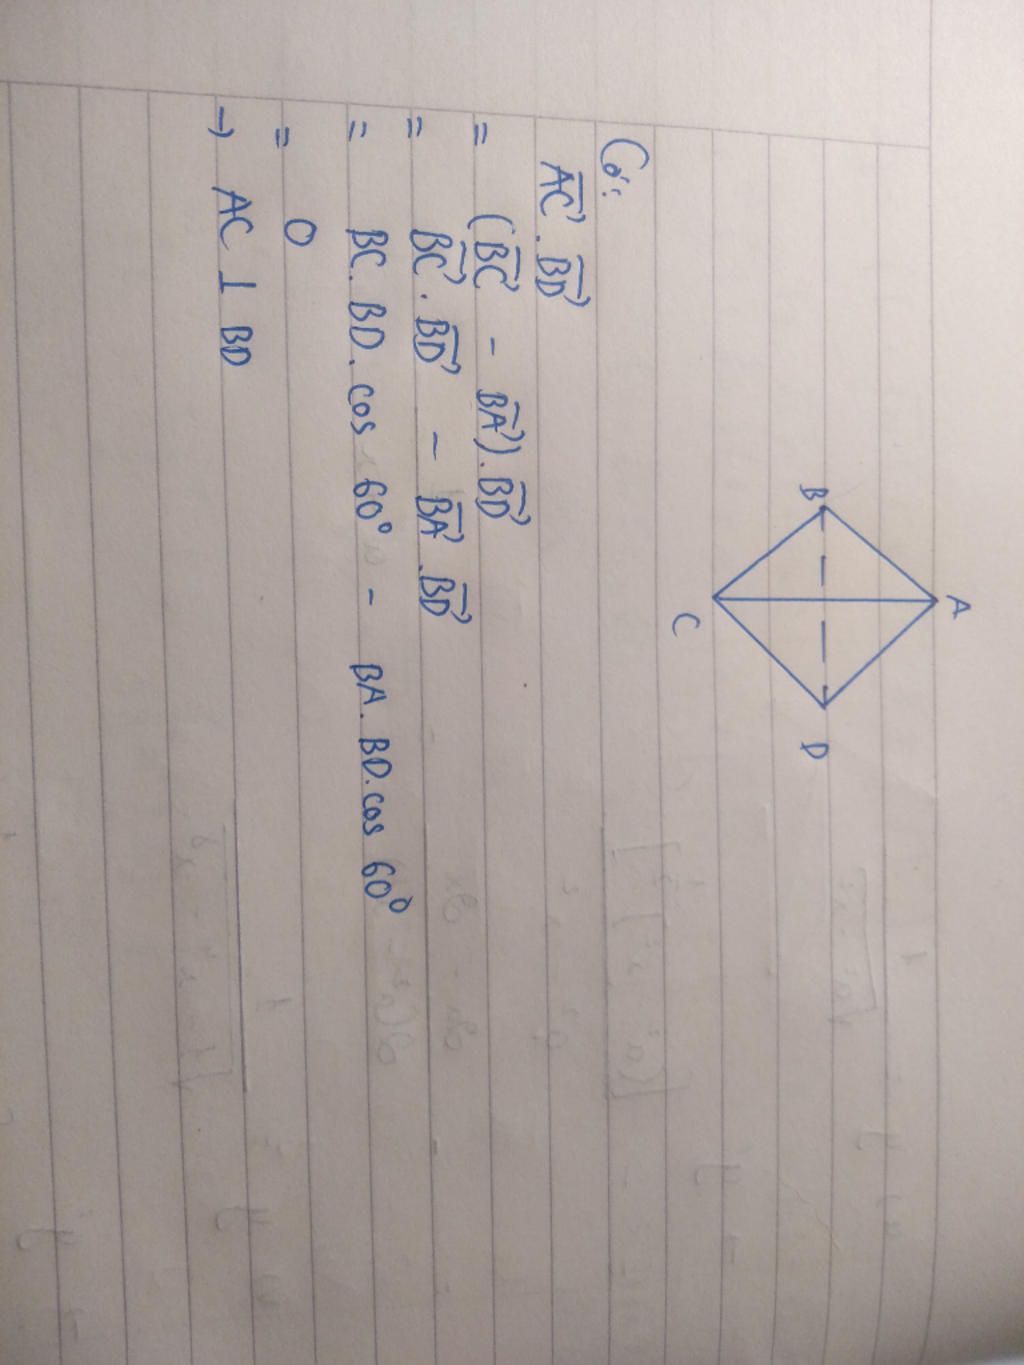 A
B
D
C
Có:
\overrightarrow{AC}.\overrightarrow{BD}
= (\overrightarrow{BC} - \overrightarrow{BA}).\overrightarrow{BD}
= \overrightarrow{BC}.\overrightarrow{BD} - \overrightarrow{BA}.\overrightarrow{BD}
= BC.BD.cos 60° - BA.BD.cos 60°
= 0
→ AC ⊥ BD